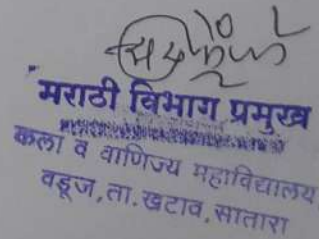 मराठी विभाग प्रमुख
कला व वाणिज्य महाविद्यालय
वडूज,ता.खटाव,सातारा